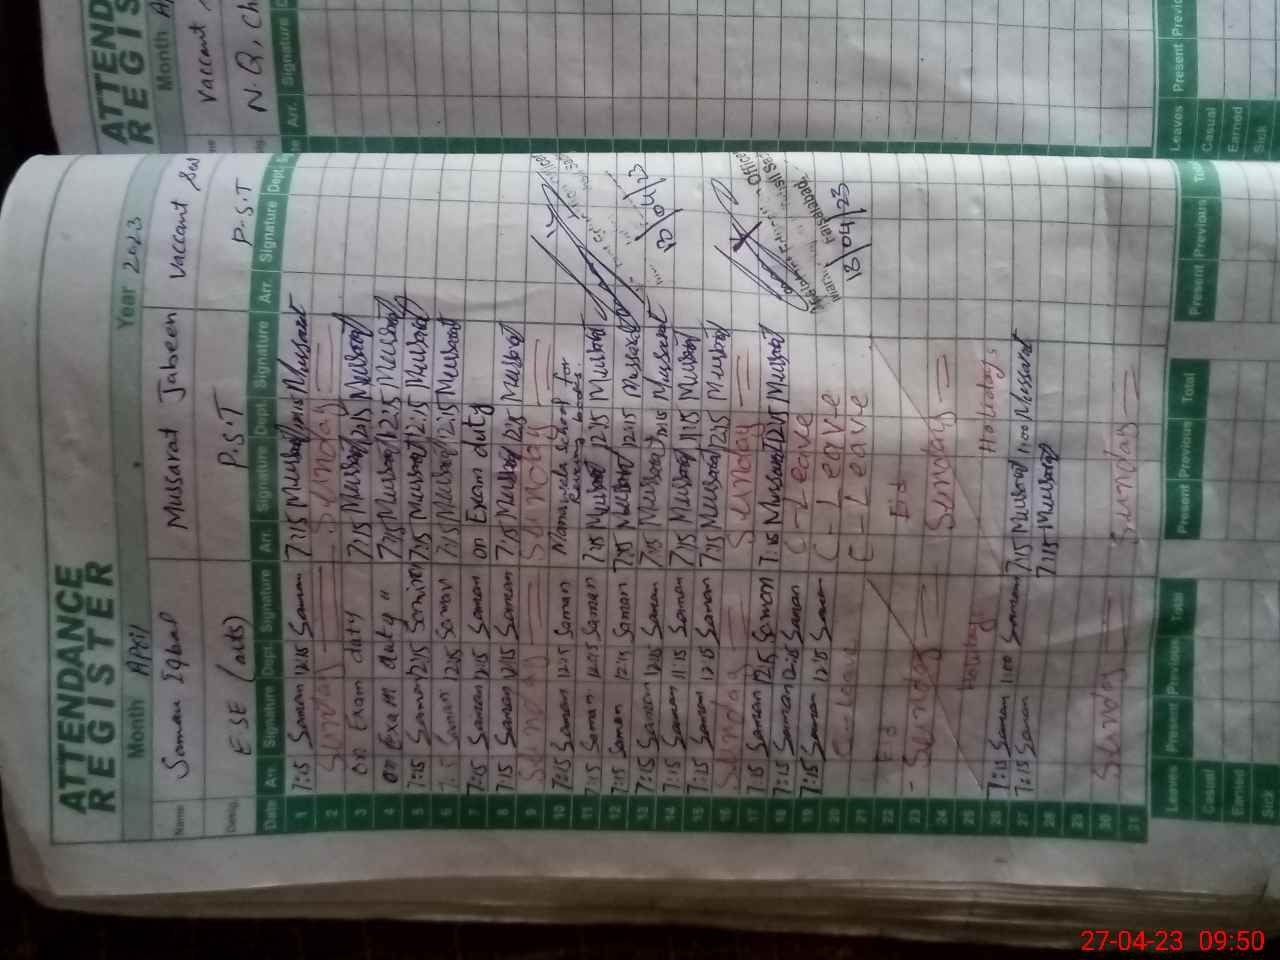 ATTENDANCE
REGISTER
Month April Year 2023
Name Saman Iqbal Mussarat Jabeen Vaccant
Desig. ESE (arts) P.S.T P.S.T
Date Arr. Signature Dept. Signature Arr. Signature Dept. Signature Arr. Signature Dept.
1 7:15 Saman 12:15 Saman 7:15 Mussarat Mussarat
2 Sunday Sunday
3 on Exam duty 7:15 Mussarat 12:15 Mussarat
4 on Exam duty " 7:15 Mussarat 12:15 Mussarat
5 7:15 Saman 12:15 7:15 Mussarat 12:15 Mussarat
6 7:15 Saman 12:15 Saman 7:15 Mussarat 12:15 Mussarat
7 7:15 Saman 12:15 Saman on Exam duty
8 7:15 Saman 12:15 Saman 7:15 Mussarat 12:15 Mussarat
9 Sunday Sunday
10 7:15 Saman 12:15 Saman School for
11 7:15 Saman 12:15 Saman 7:15 Mussarat 12:15 Mussarat
12 7:15 Saman 12:15 Saman 7:15 Mussarat 12:15 Mussarat
13 7:15 Saman 12:15 Saman 7:15 Mussarat Mussarat
14 7:15 Saman 11:15 Saman 7:15 Mussarat 11:15 Mussarat
15 7:15 Saman 12:15 Saman 7:15 Mussarat 12:15 Mussarat
16 Sunday Sunday
17 7:15 Saman 12:15 Saman 7:15 Mussarat 12:15 Mussarat
18 7:15 Saman 12:15 Saman C-Leave
19 7:15 Saman 12:15 Saman C-Leave
20 C-leave C-Leave
21
22 Eid Eid
23 Sunday Sunday
24
25 Holiday
26 7:15 Saman 1:00 Saman 7:15 Mussarat 1:00 Mussarat
27 7:15 Saman 7:15 Mussarat
28
29
30 Sunday Sunday
31
13/04/23
Faisalabad.
18/04/23
Leaves Present Previous Total Present Previous Total Present Previous
Casual
Earned
Sick
ATTEND
REGIS
Month
Vaccant
N.Q,
Arr. Signature
Leaves Present
Casual
Earned
Sick
27-04-23 09:50